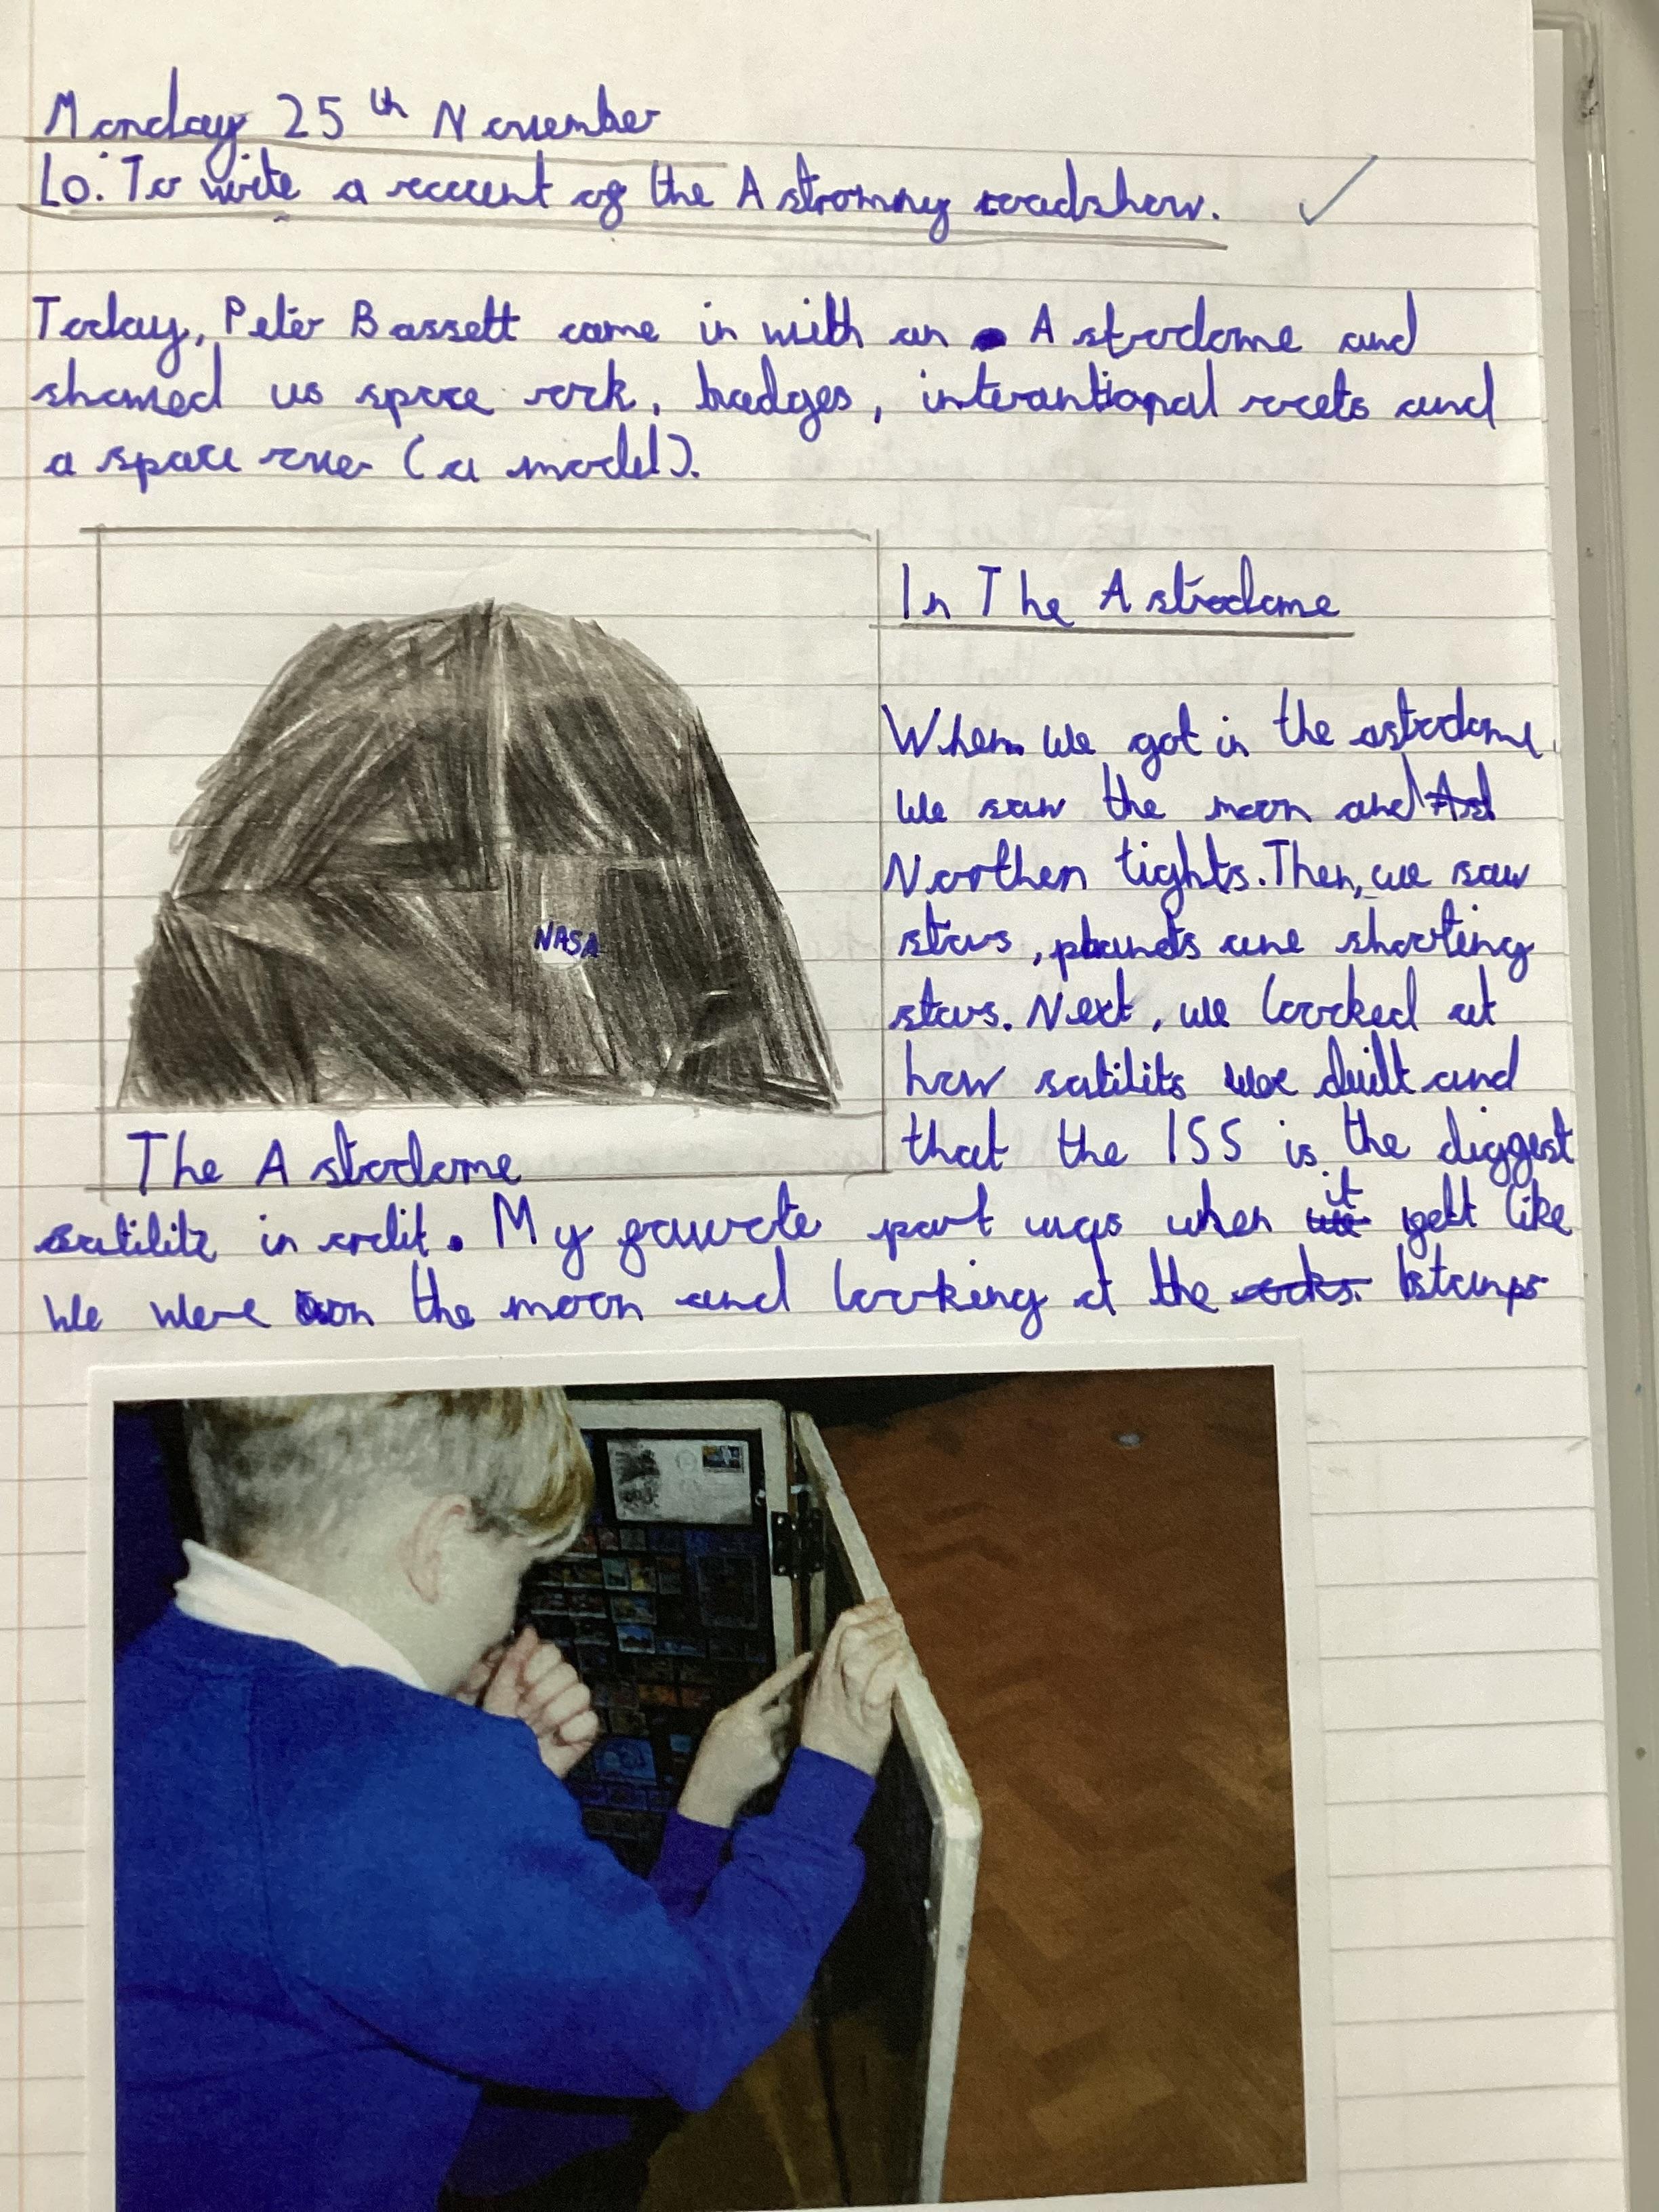 Monday 25th November
Lo: To write a recount of the Astronomy roadshow.
Today, Peter Bassett came in with an Astrodome and
showed us space rock, badges, interantional rocets and
a space rover (a model).
In The Astrodome
When we got in the astrodome,
we saw the moon and
Northen Lights. Then, we saw
stars, planets and shooting
stars. Next, we loocked at
how satilits were built and
that the ISS is the biggest
NASA
The Astrodome
satilite in ordit. My favuorote part was when it felt like
we were on the moon and looking at the stamps